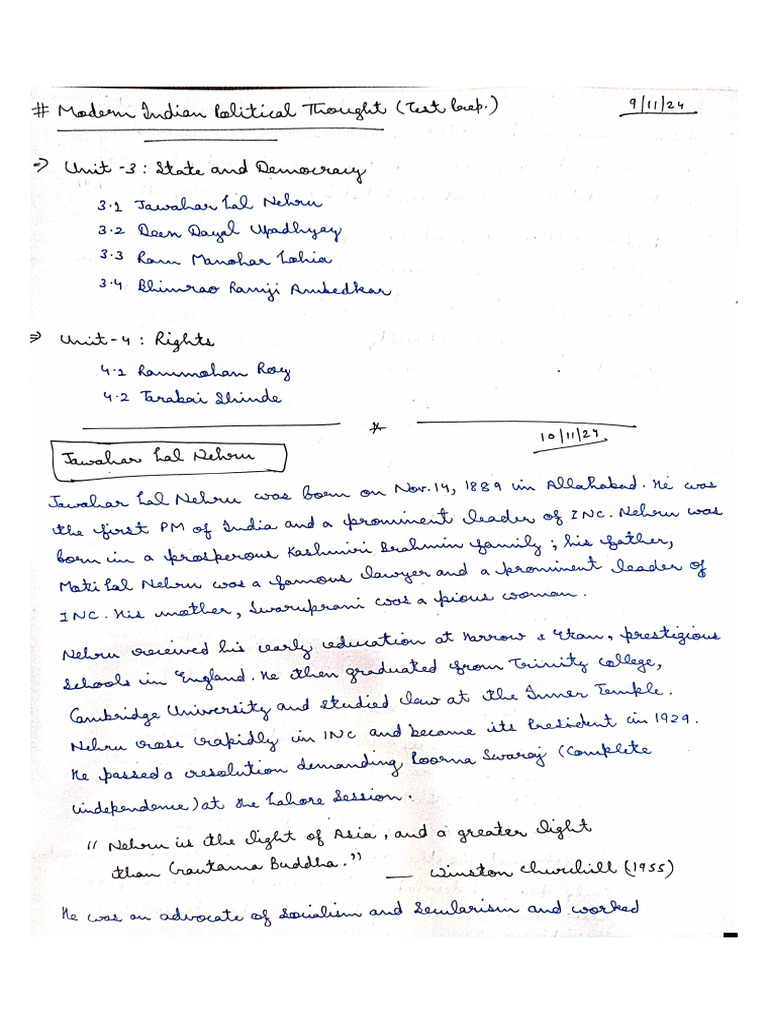 # Modern Indian Political Thought (Test Prep.) 9/11/24
⇒ Unit-3: State and Democracy
3.1 Jawahar Lal Nehru
3.2 Deen Dayal Upadhyay
3.3 Ram Manohar Lohia
3.4 Bhimrao Ramji Ambedkar
⇒ Unit-4: Rights
4.1 Rammohan Roy
4.2 Tarabai Shinde
10/11/24
Jawahar Lal Nehru
Jawahar Lal Nehru was born on Nov. 14, 1889 in Allahabad. He was
the first PM of India and a prominent leader of INC. Nehru was
born in a prosperous Kashmiri Brahmin family; his father,
Moti Lal Nehru was a famous lawyer and a prominent leader of
INC. His mother, Swaruprani was a pious woman.
Nehru received his early education at Harrow & Etan, prestigious
schools in England. He then graduated from Trinity College,
Cambridge University and studied law at the Inner Temple.
Nehru rose rapidly in INC and became its President in 1929.
He passed a resolution demanding Poorna Swaraj (Complete
independence) at the Lahore Session.
"Nehru is the light of Asia, and a greater light
than Gautama Buddha." — Winston Churchill (1955)
He was an advocate of Socialism and Secularism and worked